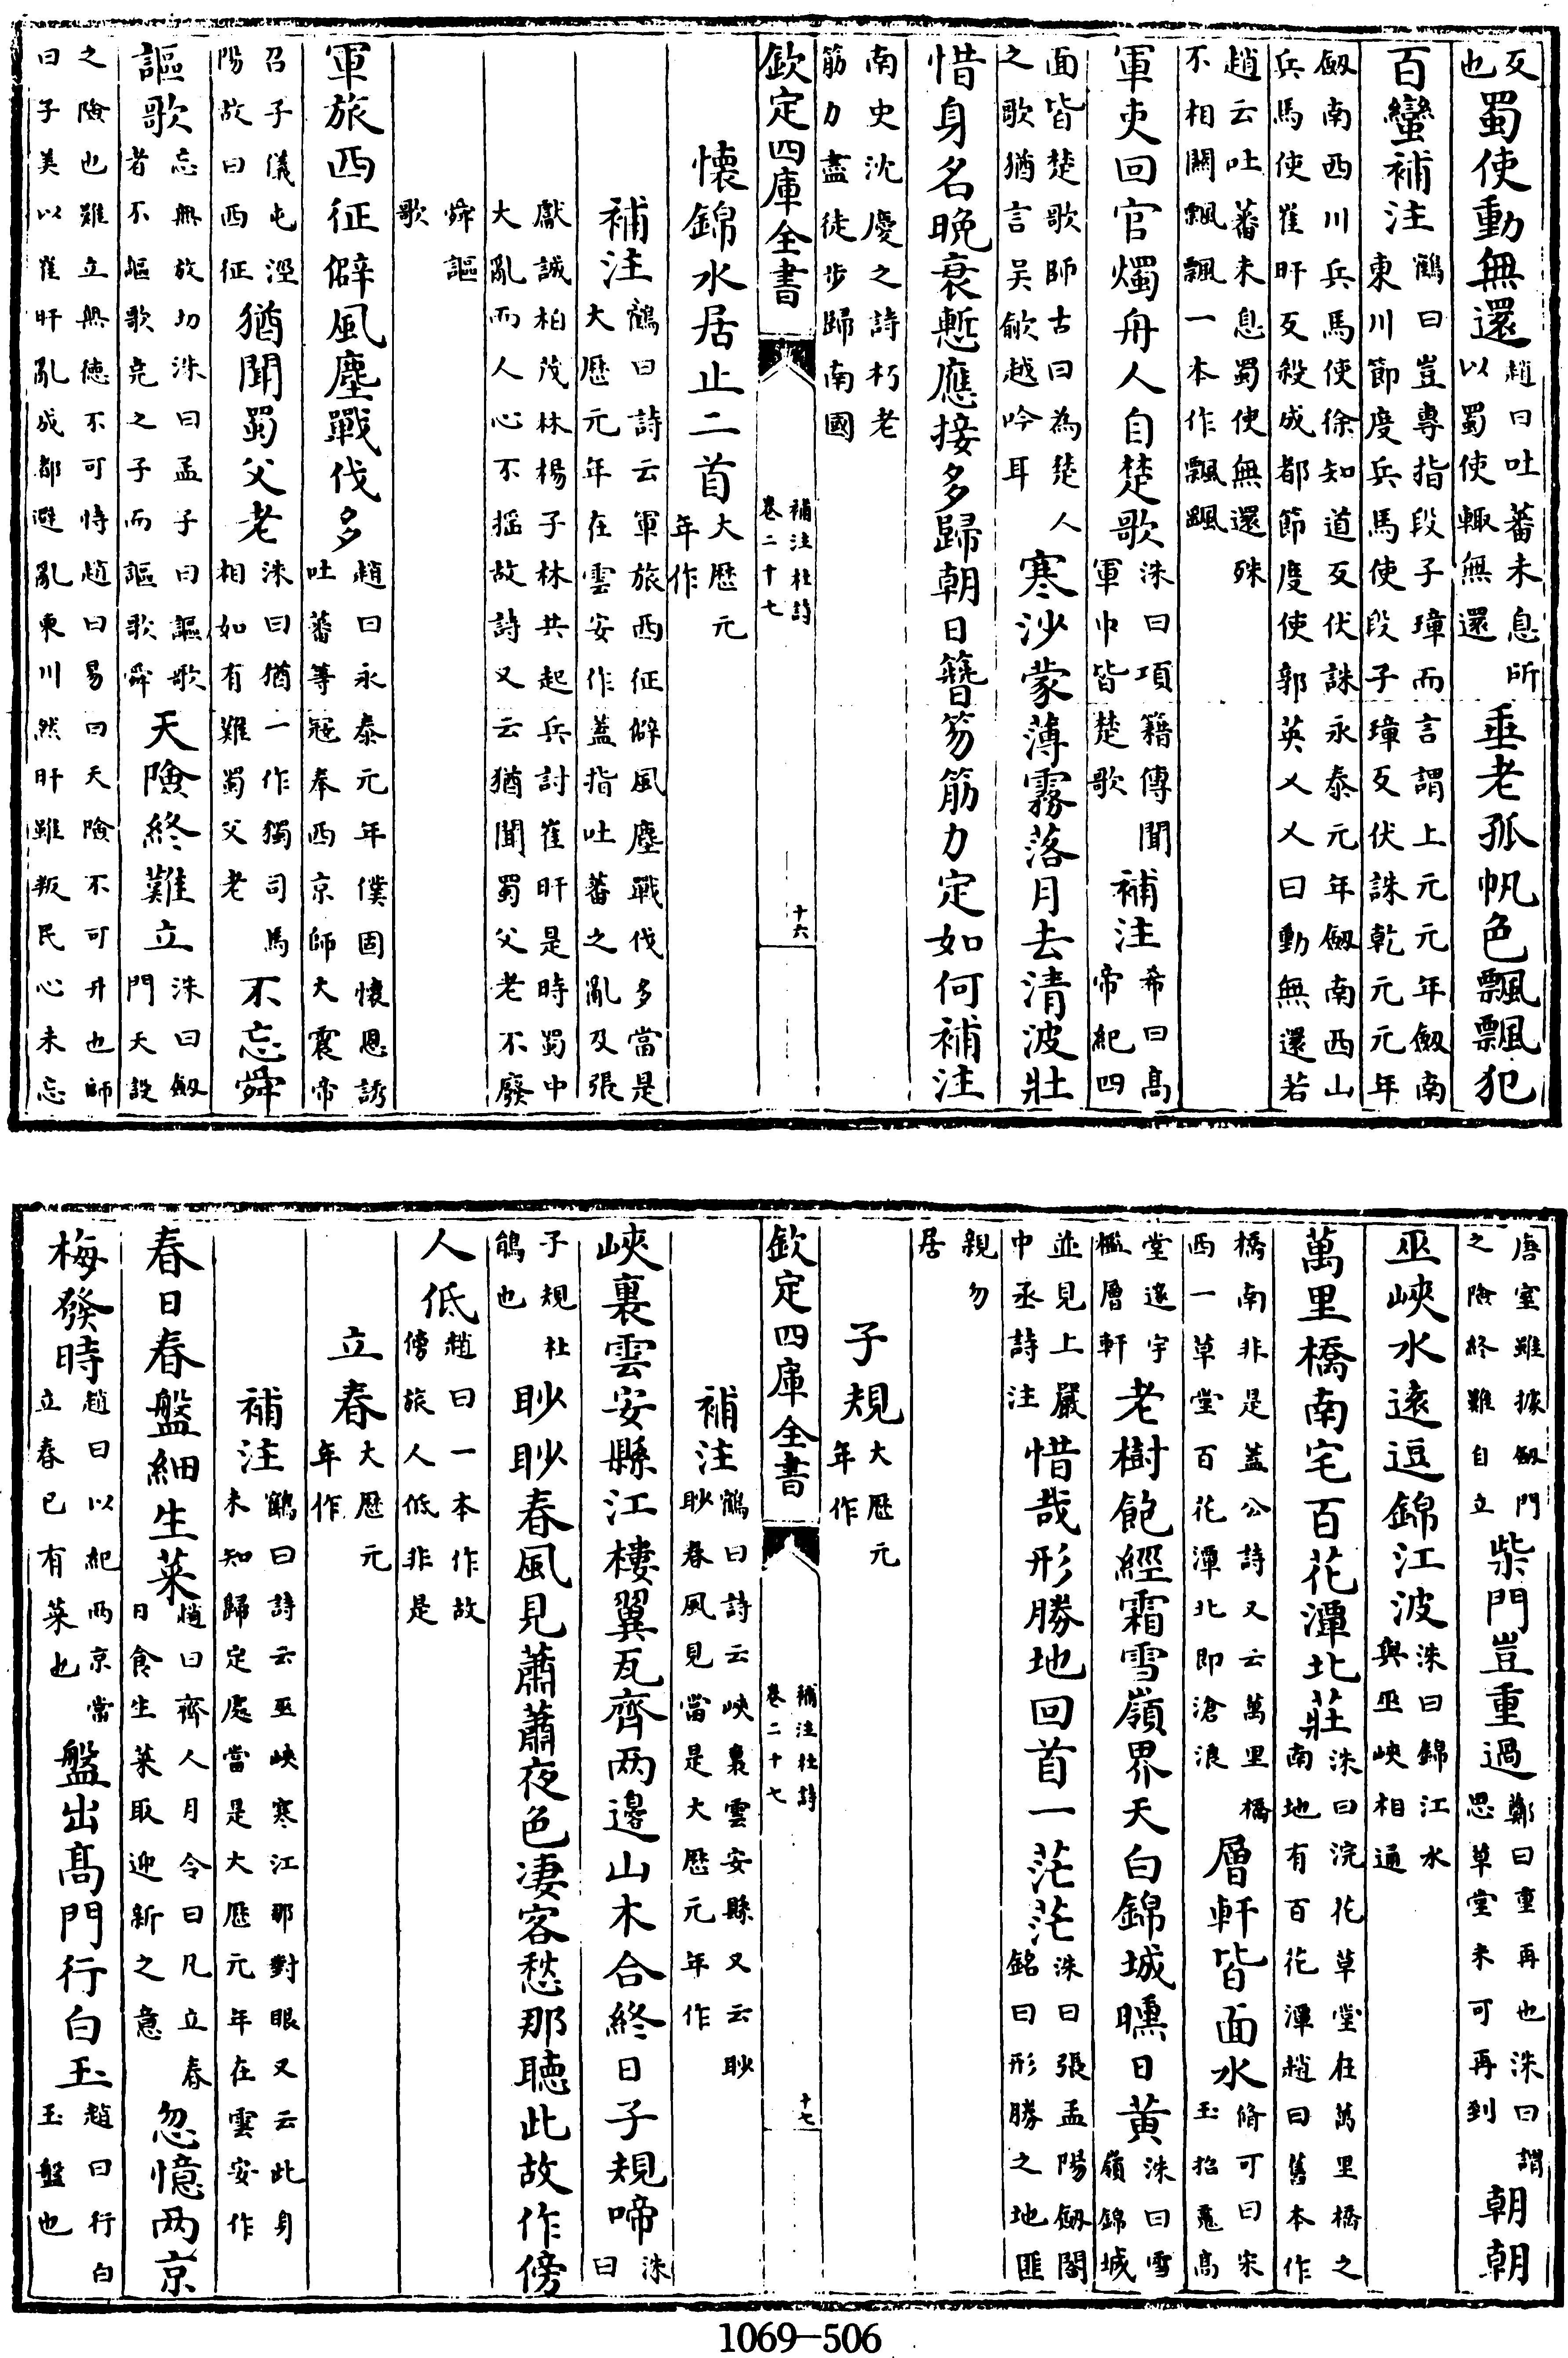 反也蜀使動無還趙曰吐蕃未息所以蜀使輙無還垂老孤帆色飄飄犯
百蠻補注鶴曰豈專指段子璋而言謂上元元年劔南東川節度兵馬使段子璋反伏誅乾元元年
劔南西川兵馬使徐知道反伏誅永泰元年劔南西山兵馬使崔旰反殺成都節度使郭英乂乂曰動無還若
趙云吐蕃未息蜀使無還殊不相關飄飄一本作飄颻
軍吏回官燭舟人自楚歌洙曰項籍傳聞軍中皆楚歌補注希曰髙帝紀四
面皆楚歌師古曰為楚人之歌猶言吴歈越吟耳寒沙蒙薄霧落月去清波壯
惜身名晚衰慙應接多歸朝日簪笏筋力定如何補注
南史沈慶之詩朽老筋力盡徒步歸南國
欽定四庫全書 補注杜詩卷二十七 十六
懷錦水居止二首大歷元年作
補注鶴曰詩云軍旅西征僻風塵戰伐多當是大歷元年在雲安作蓋指吐蕃之亂及張
獻誠柏茂林楊子林共起兵討崔旰是時蜀中大亂而人心不揺故詩又云猶聞蜀父老不廢
舜謳歌
軍旅西征僻風塵戰伐多趙曰永泰元年僕固懷恩誘吐蕃等冦奉西京師大震帝
召子儀屯涇陽故曰西征猶聞蜀父老洙曰猶一作獨司馬相如有難蜀父老不忘舜
謳歌忘無放切洙曰孟子曰謳歌者不謳歌堯之子而謳歌舜天險終難立洙曰劔門天設
之險也雖立無徳不可恃趙曰易曰天險不可升也師曰子美以崔旰亂成都避亂東川然旰雖叛民心未忘
唐室雖據劔門之險終難自立柴門豈重過鄭曰重再也洙曰謂思草堂未可再到朝朝
巫峽水逺逗錦江波洙曰錦江水與巫峽相通
萬里橋南宅百花潭北莊洙曰浣花草堂在萬里橋之南地有百花潭趙曰舊本作
橋南非是蓋公詩又云萬里橋西一草堂百花潭北即滄浪層軒皆面水脩可曰宋玉招䰟髙
堂邃宇檻層軒老樹飽經霜雪嶺界天白錦城曛日黄洙曰雪嶺錦城
並見上嚴中丞詩注惜哉形勝地回首一茫茫洙曰張孟陽劔閣銘曰形勝之地匪
親勿居
子規大歷元年作
欽定四庫全書 補注杜詩卷二十七 十七
補注鶴曰詩云峽裏雲安縣又云眇眇春風見當是大歷元年作
峽裏雲安縣江樓翼瓦齊兩邊山木合終日子規啼洙曰
子規杜鵑也眇眇春風見蕭蕭夜色凄客愁那聴此故作傍
人低趙曰一本作故傍旅人低非是
立春大歷元年作
補注鶴曰詩云巫峽寒江那對眼又云此身未知歸定處當是大歷元年在雲安作
春日春盤細生菜趙曰齊人月令曰凡立春日食生菜取迎新之意忽憶兩京
梅發時趙曰以紀兩京當立春已有菜也盤出髙門行白玉趙曰行白玉盤也
1069—506